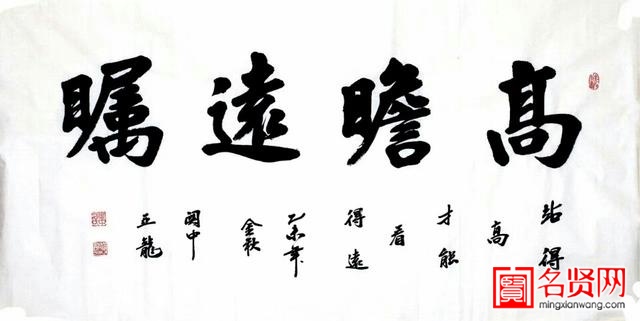 髙瞻遠瞩
站得
髙
才能
看
得遠
乙未年
金秋
中
五龍
名贤网
mingxianwang.com